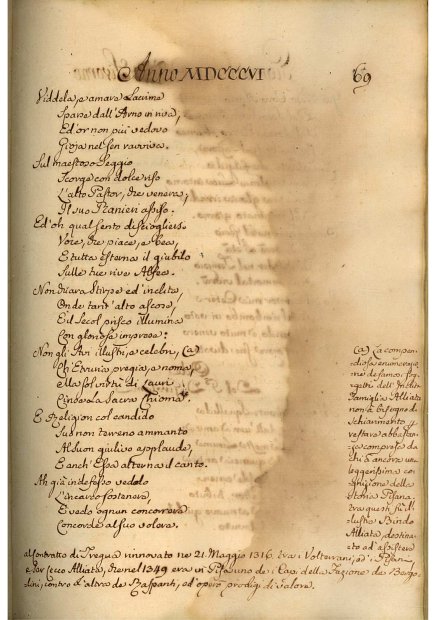 Anno MDCCCVI
69
Viddela, e amare Lacrime
Sparse dall'Arno in riva,
Ed or non più vedovo
Gioja nel sen ravviva.
Sul maestoso Seggio
Scorge con dolce riso
L'alto Pastor, che venera,
Il suo Ranieri assiso.
Ed oh qual sento disciogliersi
Voce, che piace, e bea,
E tutta esterna il giubilo
Sulle tue rive Alfea.
Non chiara Stirpe ed inclita,
Onde tant'alto ascese,
E il Secol prisco illumina
Con gloriose imprese:
Non gli Avi illustri, e celebri, (a)
Ch'Etruria pregia, e noma,
Ma sol virtù di Lauri
Cinse la Sacra Chioma.
E Religion col candido
Suo non terreno ammanto
Al suon giulivo applaude,
E anch'Essa alterna il canto.
Ah già indefesso vedolo
L'incarco sostenere,
E vedo ognun concorrere
Concorde al suo volere.
(a) La compen-
diosa enumerazio-
ne de famosi Sog-
getti dell'Inclita
Famiglia Alliata
non à bisogno di
schiarimento,
restare abbastan-
za comprese da
chi à ancora una
leggerissima co-
gnizione della
Storia Pisana,
tra questi fu l'il-
lustre Bindo
Alliata, destina-
to ad assistere
al contratto di Tregua rinnovato ne' 21. Maggio 1316. tra i Volterrani, ed i Pisani,
e Ser Cecco Alliata, che nel 1349 era in Pisa uno de' Capi della Fazione de Bergo-
lini, contro l'altra de Raspanti, ed operò prodigj di valore.